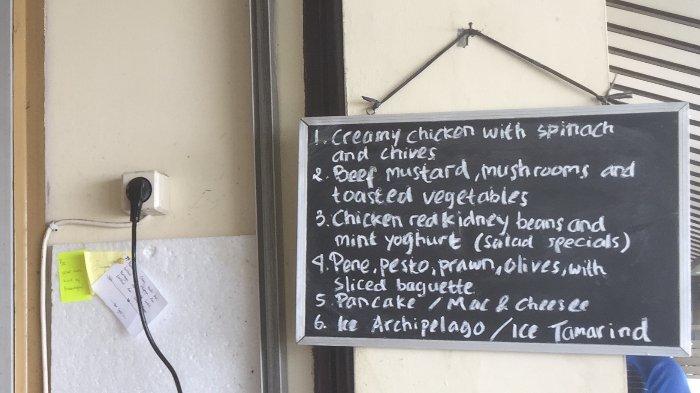 1. Creamy chicken with spinach
and chives
2. Beef mustard, mushrooms and
toasted vegetables
3. Chicken red kidney beans and
mint yoghurt (salad specials)
4. Pene, pesto, prawn, olives, with
sliced baguette
5. Pancake / Mac & cheese
6. Ice Archipelago / Ice Tamarind